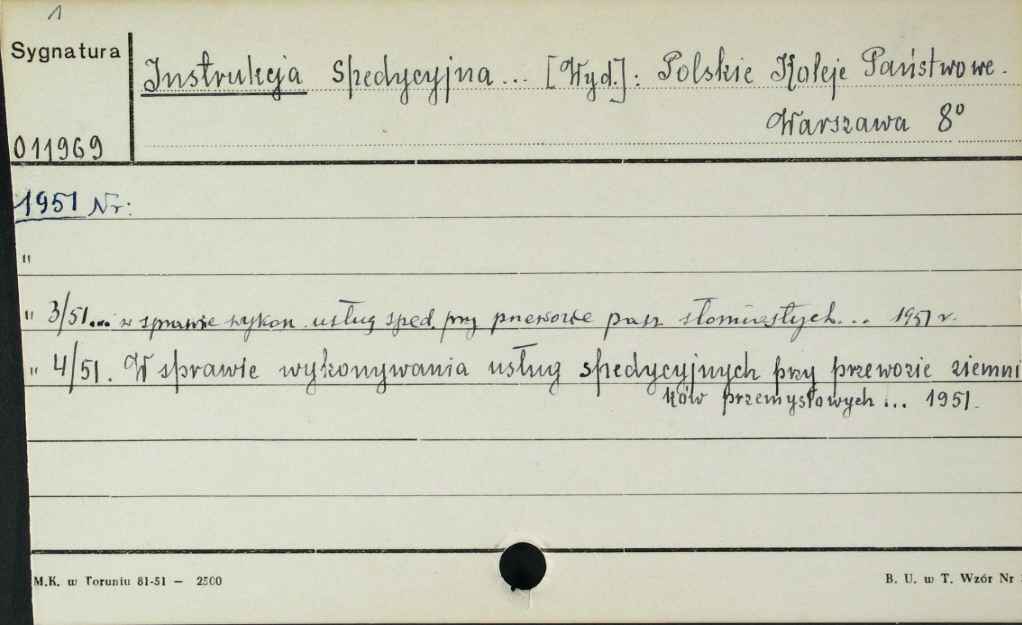 1
Sygnatura
Instrukcja Spedycyjna... [Wyd]: Polskie Koleje Państwowe.
Warszawa 8°
011969
1951 Nr:
"
" 3/51... w sprawie wykon. usług sped. przy przewozie pasz słomiastych... 1951 r.
" 4/51. W sprawie wykonywania usług spedycyjnych przy przewozie ziemni
ków przemysłowych... 1951.
M.K. w Toruniu 81-51 — 2500
B. U. w T. Wzór Nr